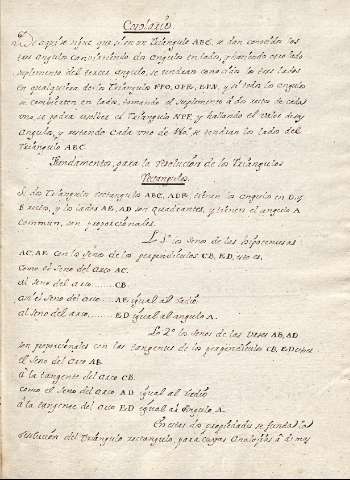 Corolario
De aqui se sigue que si en un Triangulo ABC, se dan conocidos los
tres Angulos Convirtiendo un Angulo en lado, y tomando otro lado
suplemento del tercer angulo, se tendran conocidos los tres lados
en qualquiera de los Triangulos y si todos los Angulos
se combirten en lados, tomando el Suplemento á dos rectos de cada
uno, se podra resolver el Triangulo y hallando el valor de sus
Angulos, y restando Cada uno de se tendran los lados del
Triangulo ABC.
Fundamentos para la Resolucion de los Triangulos
Rectangulos.
Si dos Triangulos rectangulos ABC, ADE, tienen los Angulos en D. y
B rectos, y los lados AE, AD son quadrantes, y tienen el angulo A
Commun, son proporcionales.
Lo 1º los senos de las hipotenusas
AC, AE con los senos de los perpendiculos CB, ED, esto es,
Como el seno del arco AC.
al seno del arco ....... CB.
asi el seno del arco ... AE igual al radio
al seno del arco ....... ED igual al angulo A.
Lo 2º los senos de las vases AB, AD
son proporcionales con las tangentes de los perpendiculos CB, ED
el seno del arco AB.
á la tangente del arco CB.
como el seno del arco AD igual al radio
á la tangente del arco ED igual al Angulo A.
En estas dos propiedades se funda la
resolucion del triangulo rectangulo, para cuyas Analogias á de mas